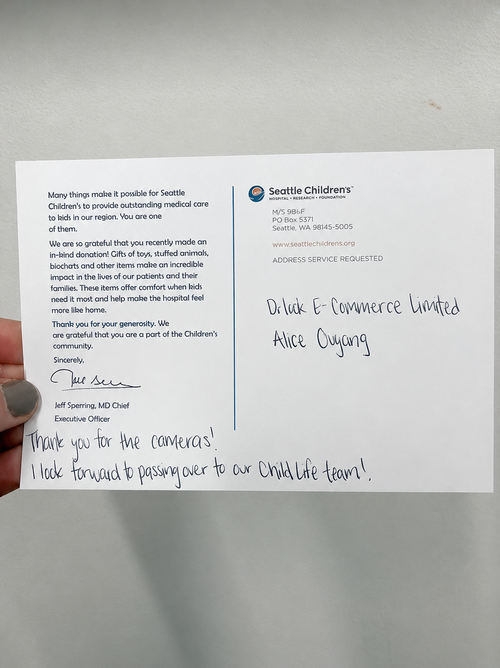 Many things make it possible for Seattle
Children's to provide outstanding medical care
to kids in our region. You are one
of them.
We are so grateful that you recently made an
in-kind donation! Gifts of toys, stuffed animals,
biochats and other items make an incredible
impact in the lives of our patients and their
families. These items offer comfort when kids
need it most and help make the hospital feel
more like home.
Thank you for your generosity. We
are grateful that you are a part of the Children's
community.
Sincerely,
Jeff Sperring, MD Chief
Executive Officer
Thank you for the cameras!
I look forward to passing over to our Child Life team!
Seattle Children's
HOSPITAL • RESEARCH • FOUNDATION
M/S
PO Box 5371
Seattle, WA 98145-5005
www.seattlechildrens.org
ADDRESS SERVICE REQUESTED
E-Commerce Limited
Alice Ouyang